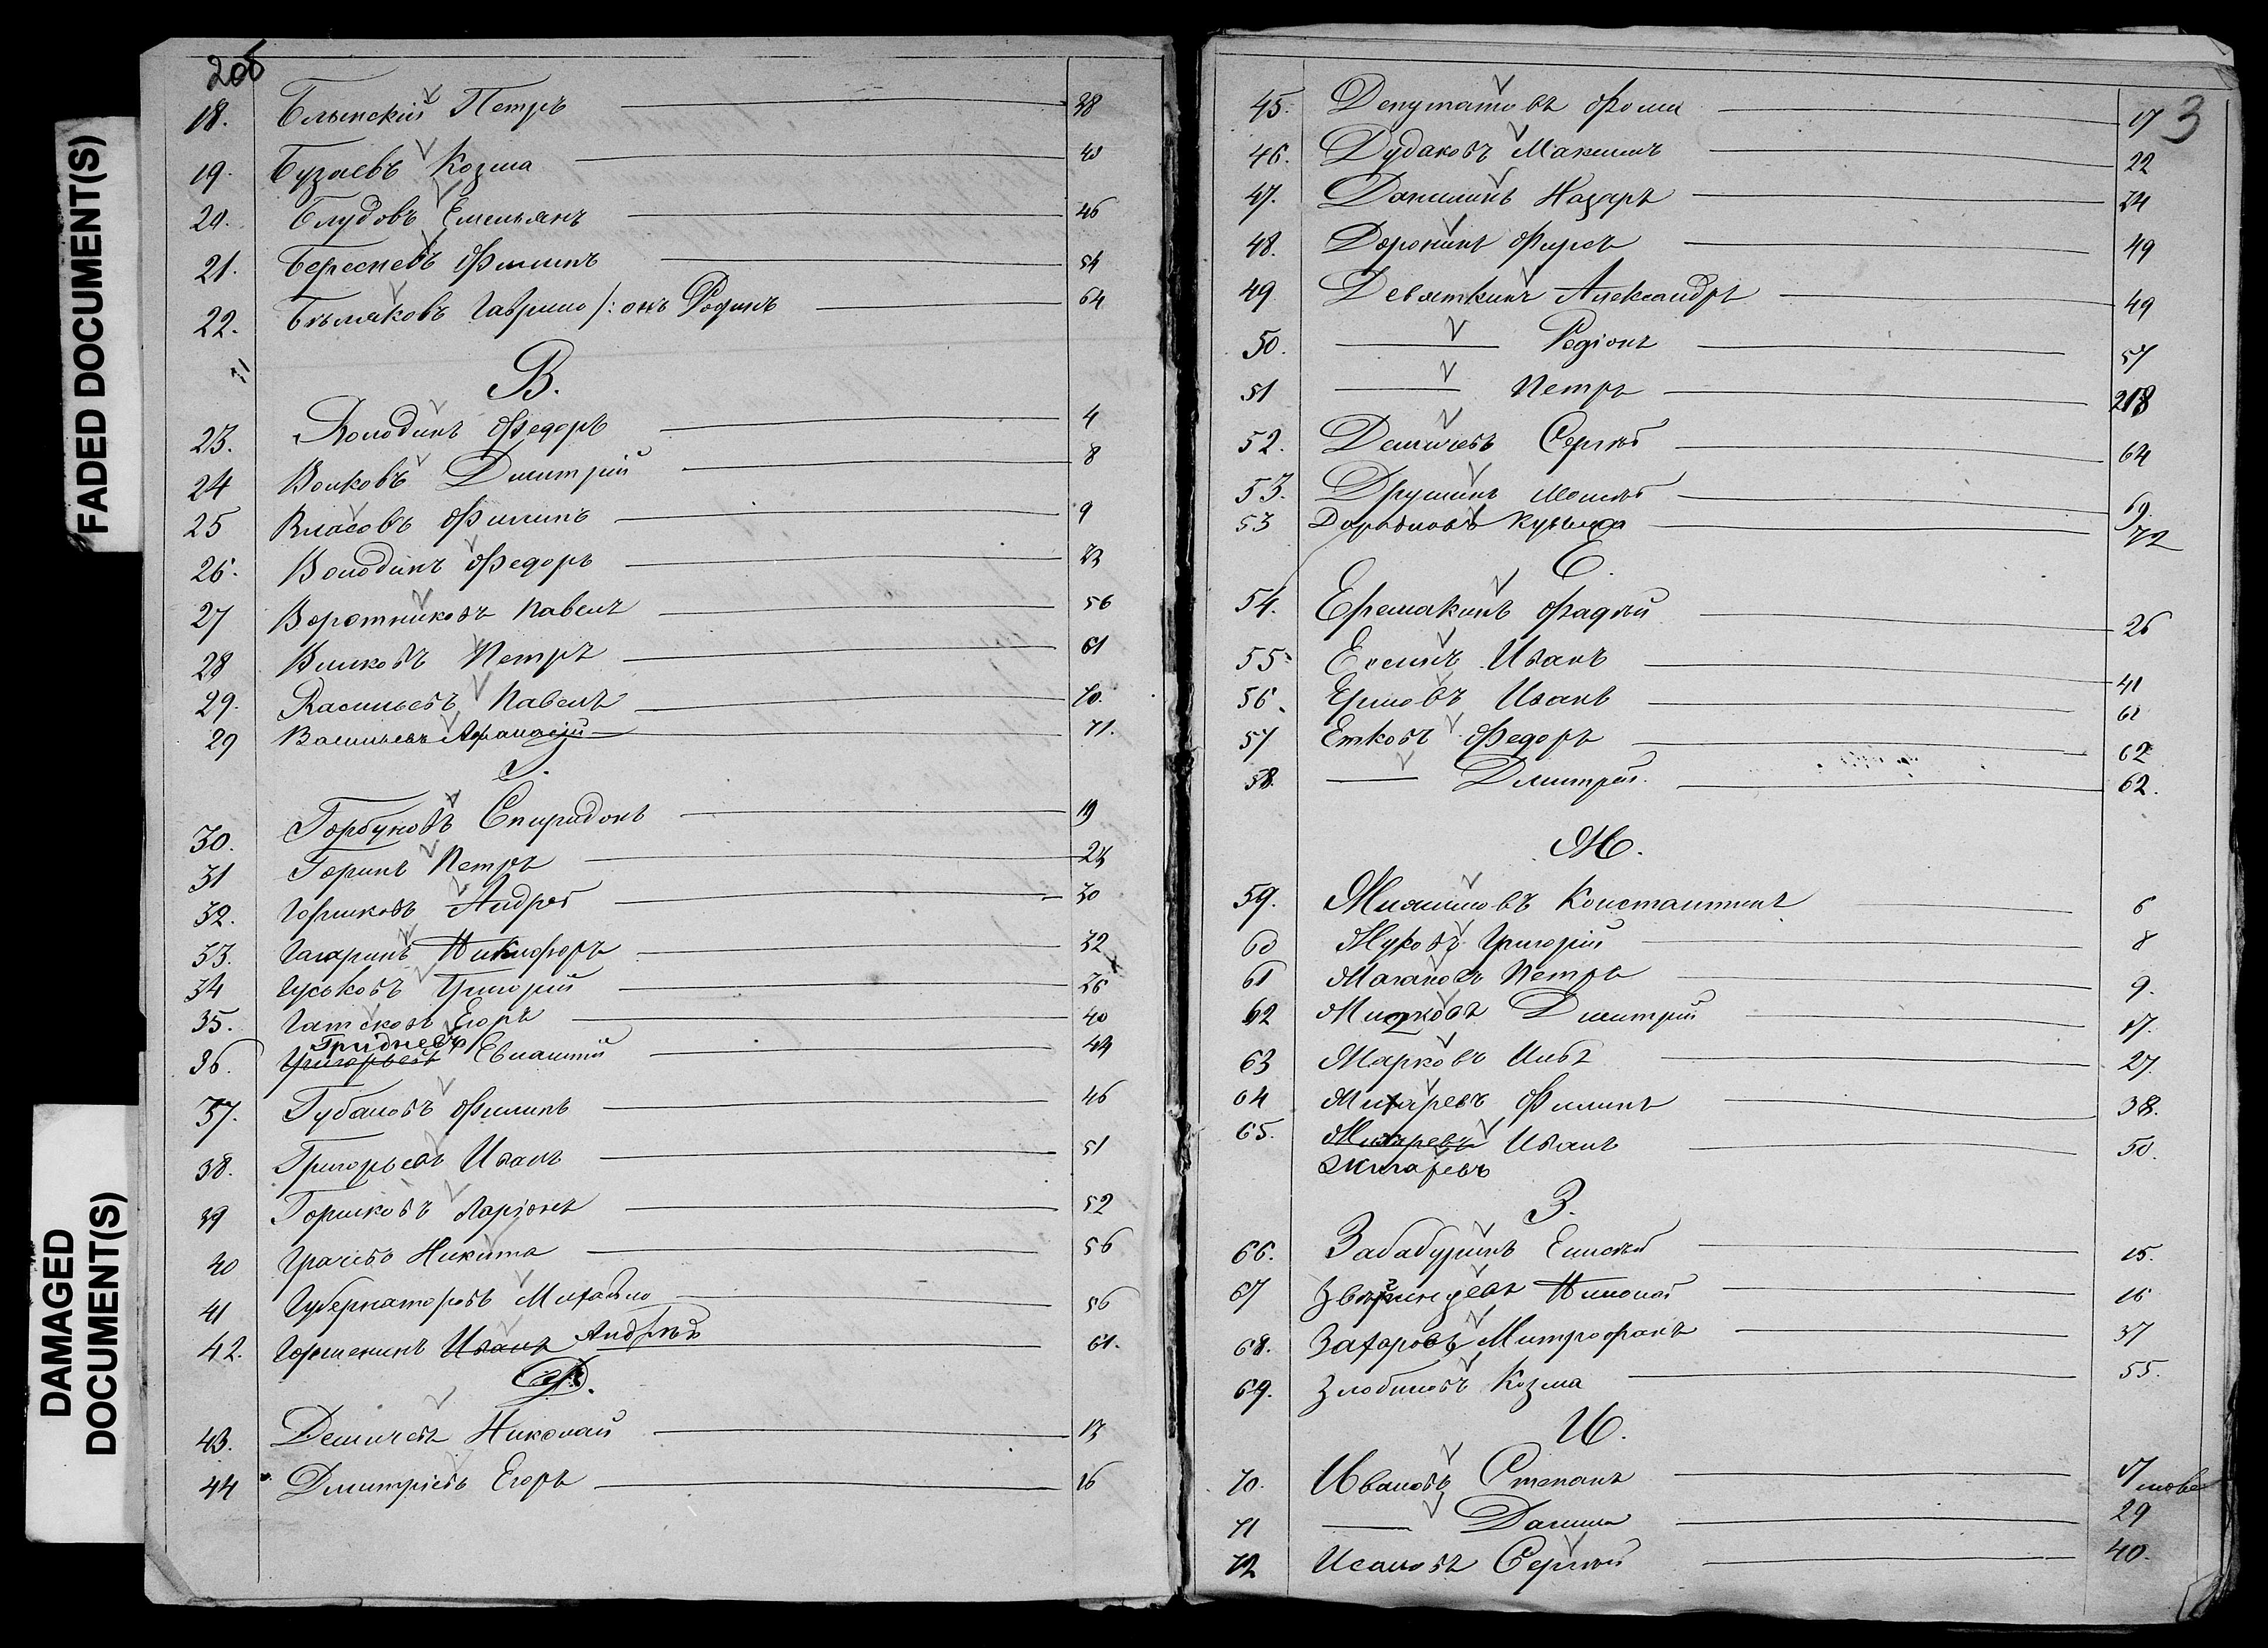 FADED DOCUMENT(S)
DAMAGED DOCUMENT(S)
2об
18. Бѣлынскій Петръ 38
19. Бузаевъ Козма 43
20. Блудовъ Емельянъ 46
21. Береснев Филипъ 54
22. Бѣляковъ Гаврило /: онъ Родинъ 64
В.
23. Володинъ Федоръ 4
24 Волковъ Дмитрій 8
25 Власовъ Филипъ 9
26. Володинъ Федоръ 23
27 Воротниковъ Павелъ 56
28 Вилковъ Петръ 61
29. Васильевъ Павелъ 70.
29 Васильевъ Афанасій 71.
Г.
30. Горбуновъ Спиридонъ 19
31 Горинъ Петръ 23
32. Горшковъ Андрей 30
33. Гагаринъ Никифоръ 32
34 Гуськовъ Григорій 36
35. Гатсковъ Егоръ 40
36. Григорьевъ Гридневъ Евлампій 44
37. Губановъ Филипъ 46
38. Григорьевъ Иванъ 51
39 Горшковъ Ларіонъ 52
40 Грачевъ Никита 56
41 Губернаторовъ Михайло 56
42. Горшенинъ Иванъ Андрѣй 61.
Д.
43. Демичевъ Николай 13
44 Дмитріевъ Егоръ 16
3
45. Депутатовъ Фома 17
46. Дудаковъ Максимъ 22
47. Данилинъ Назаръ 24
48. Доронинъ Фирсъ 49
49 Девяткинъ Александръ 49
50. Родіонъ 57
51 Петръ 218
52. Демичевъ Сергей 64
53. Друшинъ Моисей 69.
53 Дорофѣевъ Кузьма 72
Е.
54. Еремакинъ Фадѣй 26
55. Есинъ Иванъ 41
56. Ершовъ Иванъ 61
57 Етковъ Федоръ 62
58. Дмитрій 62.
Ж.
59. Константинъ 6
60 Жуковъ Григорій 8
61 Петръ 9.
62 Дмитрий 17.
63 Жарковъ Глѣбъ 27.
64 Жихаревъ Филипъ 38.
65. Жихаревъ Иванъ 50.
Жигаревъ
З.
66. Забабуринъ Елисей 15.
67 Николай 16
68. Захаровъ Митрофанъ 37
69. Злобиновъ Козма 55.
И.
70. Ивановъ Степанъ 17
71 Данила 29
72 Исановъ Сергѣй 40.